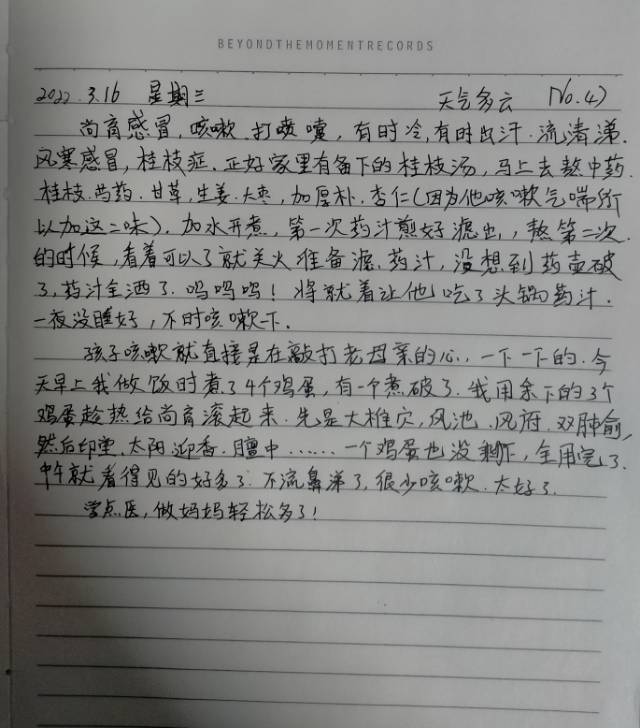 BEYONDTHEMOMENTRECORDS
2022.3.16 星期三 天气多云 No.47
尚育感冒,咳嗽.打喷嚏,有时冷,有时出汗.流清涕.
风寒感冒,桂枝症.正好家里有备下的桂枝汤,马上去熬中药.
桂枝.芍药.甘草,生姜.大枣,加厚朴.杏仁(因为他咳嗽气喘所
以加这二味).加水开煮,第一次药汁煎好滤出,熬第二次
的时候,看着可以了就关火准备滤.药汁,没想到药壶破
了,药汁全洒了.呜呜呜!将就着让他吃了头锅药汁.
一夜没睡好,不时咳嗽一下.
孩子咳嗽就直接是在敲打老母亲的心,一下一下的.今
天早上我做饭时煮了4个鸡蛋,有一个煮破了.我用余下的3个
鸡蛋趁热给尚育滚起来.先是大椎穴,风池.风府.双肺俞,
然后印堂.太阳.迎香.膻中……一个鸡蛋也没剩下,全用完了.
中午就看得见的好多了.不流鼻涕了,很少咳嗽.太好了.
学点医,做妈妈轻松多了!